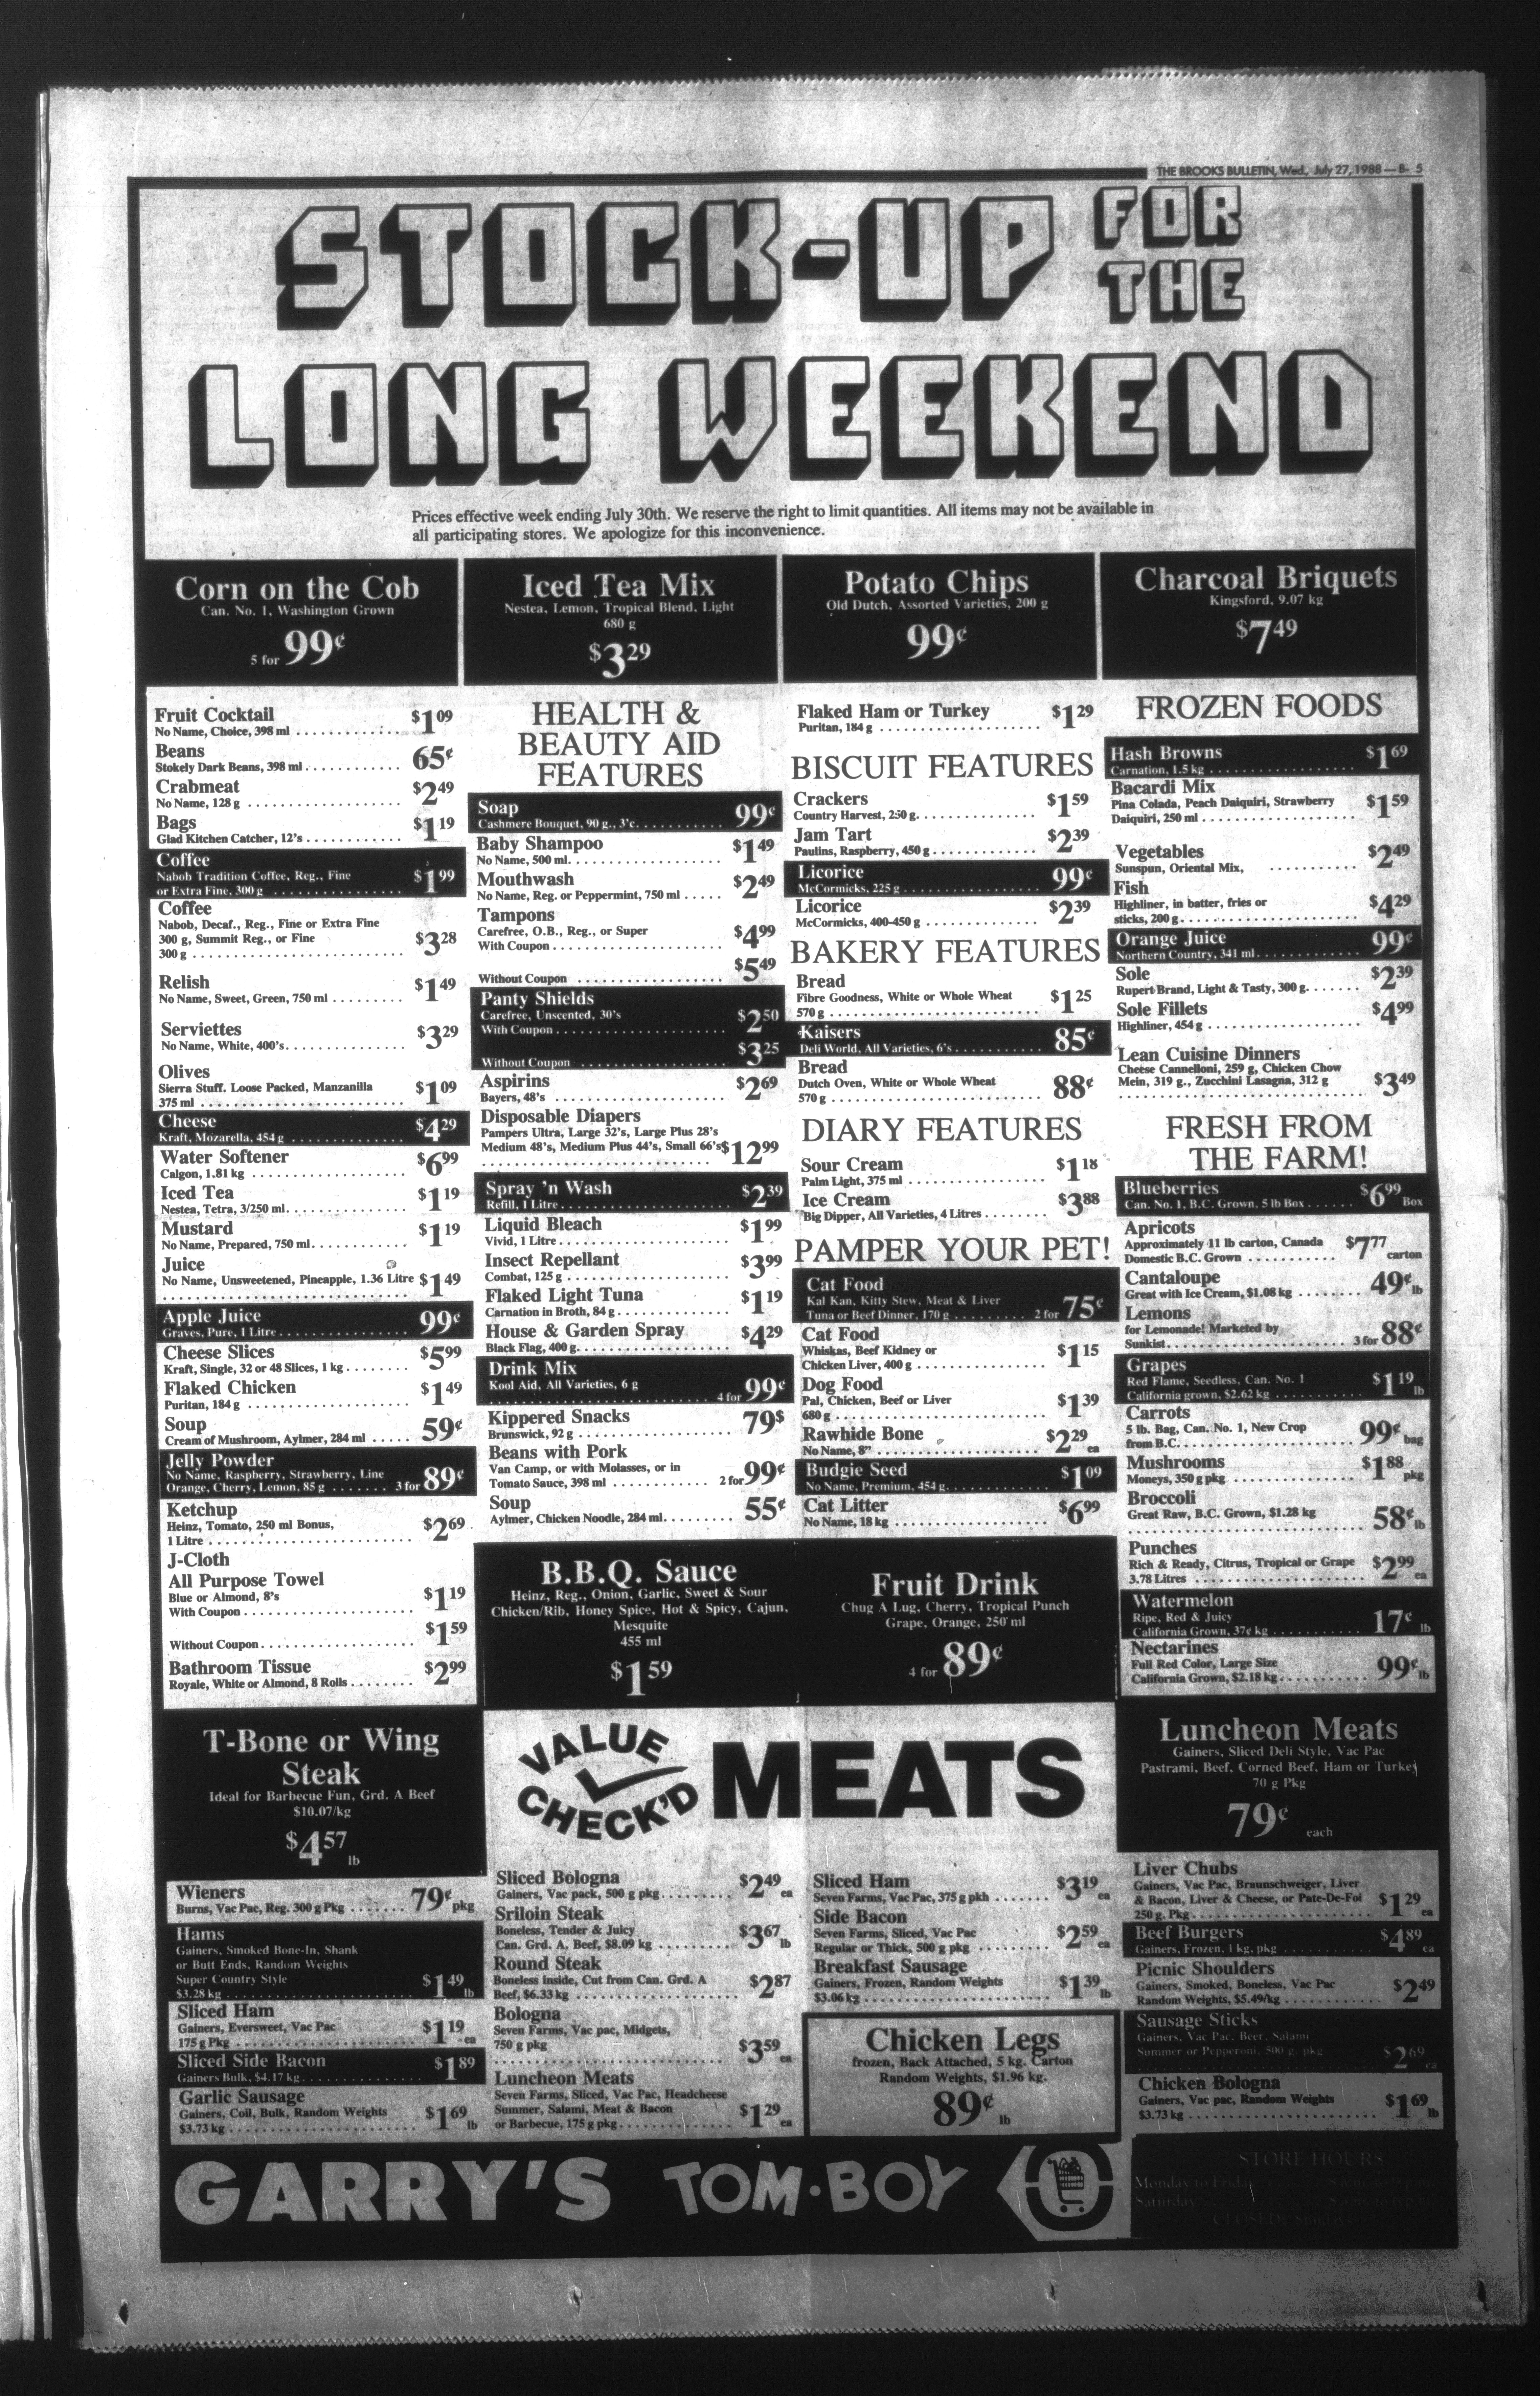 THE BROOKS BULLETIN, Wed., July 27, 1988 — B- 5
STOCK-UP FOR THE
LONG WEEKEND
Prices effective week ending July 30th. We reserve the right to limit quantities. All items may not be available in
all participating stores. We apologize for this inconvenience.
Corn on the Cob
Can. No. 1, Washington Grown
5 for 99¢
Iced Tea Mix
Nestea, Lemon, Tropical Blend, Light
680 g
$3.29
Potato Chips
Old Dutch, Assorted Varieties, 200 g
99¢
Charcoal Briquets
Kingsford, 9.07 kg
$7.49
Fruit Cocktail
No Name, Choice, 398 ml . . . . $1.09
Beans
Stokely Dark Beans, 398 ml . . . . 65¢
Crabmeat
No Name, 128 g . . . . $2.49
Bags
Glad Kitchen Catcher, 12's . . . . $1.19
Coffee
Nabob Tradition Coffee, Reg., Fine
or Extra Fine, 300 g . . . . $1.99
Coffee
Nabob, Decaf., Reg., Fine or Extra Fine
300 g, Summit Reg., or Fine
300 g . . . . $3.28
Relish
No Name, Sweet, Green, 750 ml . . . . $1.49
Serviettes
No Name, White, 400's . . . . $3.29
Olives
Sierra Stuff. Loose Packed, Manzanilla
375 ml . . . . $1.09
Cheese
Kraft, Mozarella, 454 g . . . . $4.29
Water Softener
Calgon, 1.81 kg . . . . $6.99
Iced Tea
Nestea, Tetra, 3/250 ml . . . . $1.19
Mustard
No Name, Prepared, 750 ml . . . . $1.19
Juice
No Name, Unsweetened, Pineapple, 1.36 Litre $1.49
Apple Juice
Graves, Pure, 1 Litre . . . . 99¢
Cheese Slices
Kraft, Single, 32 or 48 Slices, 1 kg . . . . $5.99
Flaked Chicken
Puritan, 184 g . . . . $1.49
Soup
Cream of Mushroom, Aylmer, 284 ml . . . . 59¢
Jelly Powder
No Name, Raspberry, Strawberry, Line
Orange, Cherry, Lemon, 85 g . . . . 3 for 89¢
Ketchup
Heinz, Tomato, 250 ml Bonus,
1 Litre . . . . $2.69
J-Cloth
All Purpose Towel
Blue or Almond, 8's
With Coupon . . . . $1.19
Without Coupon . . . . $1.59
Bathroom Tissue
Royale, White or Almond, 8 Rolls . . . . $2.99
HEALTH &
BEAUTY AID
FEATURES
Soap
Cashmere Bouquet, 90 g., 3's . . . . 99¢
Baby Shampoo
No Name, 500 ml . . . . $1.49
Mouthwash
No Name, Reg. or Peppermint, 750 ml . . . . $2.49
Tampons
Carefree, O.B., Reg., or Super
With Coupon . . . . $4.99
Without Coupon . . . . $5.49
Panty Shields
Carefree, Unscented, 30's
With Coupon . . . . $2.50
Without Coupon . . . . $3.25
Aspirins
Bayers, 48's . . . . $2.69
Disposable Diapers
Pampers Ultra, Large 32's, Large Plus 28's
Medium 48's, Medium Plus 44's, Small 66's $12.99
Spray 'n Wash
Refill, 1 Litre . . . . $2.39
Liquid Bleach
Vivid, 1 Litre . . . . $1.99
Insect Repellant
Combat, 125 g . . . . $3.99
Flaked Light Tuna
Carnation in Broth, 84 g . . . . $1.19
House & Garden Spray
Black Flag, 400 g . . . . $4.29
Drink Mix
Kool Aid, All Varieties, 6 g
4 for 99¢
Kippered Snacks
Brunswick, 92 g . . . . 79$
Beans with Pork
Van Camp, or with Molasses, or in
Tomato Sauce, 398 ml . . . . 2 for 99¢
Soup
Aylmer, Chicken Noodle, 284 ml . . . . 55¢
Flaked Ham or Turkey
Puritan, 184 g . . . . $1.29
BISCUIT FEATURES
Crackers
Country Harvest, 250 g . . . . $1.59
Jam Tart
Paulins, Raspberry, 450 g . . . . $2.39
Licorice
McCormicks, 225 g . . . . 99¢
Licorice
McCormicks, 400-450 g . . . . $2.39
BAKERY FEATURES
Bread
Fibre Goodness, White or Whole Wheat
570 g . . . . $1.25
Kaisers
Deli World, All Varieties, 6's . . . . 85¢
Bread
Dutch Oven, White or Whole Wheat
570 g . . . . 88¢
DIARY FEATURES
Sour Cream
Palm Light, 375 ml . . . . $1.18
Ice Cream
Big Dipper, All Varieties, 4 Litres . . . . $3.88
PAMPER YOUR PET!
Cat Food
Kal Kan, Kitty Stew, Meat & Liver
Tuna or Beef Dinner, 170 g . . . . 2 for 75¢
Cat Food
Whiskas, Beef Kidney or
Chicken Liver, 400 g . . . . $1.15
Dog Food
Pal, Chicken, Beef or Liver
680 g . . . . $1.39
Rawhide Bone
No Name, 8" . . . . $2.29 ea
Budgie Seed
No Name, Premium, 454 g . . . . $1.09
Cat Litter
No Name, 18 kg . . . . $6.99
FROZEN FOODS
Hash Browns
Carnation, 1.5 kg . . . . $1.69
Bacardi Mix
Pina Colada, Peach Daiquiri, Strawberry
Daiquiri, 250 ml . . . . $1.59
Vegetables
Sunspun, Oriental Mix, . . . . $2.49
Fish
Highliner, in batter, fries or
sticks, 200 g . . . . $4.29
Orange Juice
Northern Country, 341 ml . . . . 99¢
Sole
Rupert Brand, Light & Tasty, 300 g. . . . . $2.39
Sole Fillets
Highliner, 454 g . . . . $4.99
Lean Cuisine Dinners
Cheese Cannelloni, 259 g, Chicken Chow
Mein, 319 g., Zucchini Lasagna, 312 g
$3.49
FRESH FROM
THE FARM!
Blueberries
Can. No. 1, B.C. Grown, 5 lb Box . . . . $6.99 Box
Apricots
Approximately 11 lb carton, Canada
Domestic B.C. Grown . . . . $7.77 carton
Cantaloupe
Great with Ice Cream, $1.08 kg . . . . 49¢ lb
Lemons
for Lemonade! Marketed by
Sunkist . . . . 3 for 88¢
Grapes
Red Flame, Seedless, Can. No. 1
California grown, $2.62 kg . . . . $1.19 lb
Carrots
5 lb. Bag, Can. No. 1, New Crop
from B.C. . . . . 99¢ bag
Mushrooms
Moneys, 350 g pkg . . . . $1.88 pkg
Broccoli
Great Raw, B.C. Grown, $1.28 kg
58¢ lb
Punches
Rich & Ready, Citrus, Tropical or Grape
3.78 Litres . . . . $2.99 ea
Watermelon
Ripe, Red & Juicy
California Grown, 37¢ kg . . . . 17¢ lb
Nectarines
Full Red Color, Large Size
California Grown, $2.18 kg . . . . 99¢ lb
B.B.Q. Sauce
Heinz, Reg., Onion, Garlic, Sweet & Sour
Chicken/Rib, Honey Spice, Hot & Spicy, Cajun,
Mesquite
455 ml
$1.59
Fruit Drink
Chug A Lug, Cherry, Tropical Punch
Grape, Orange, 250 ml
4 for 89¢
T-Bone or Wing
Steak
Ideal for Barbecue Fun, Grd. A Beef
$10.07/kg
$4.57 lb
VALUE
CHECK'D
MEATS
Luncheon Meats
Gainers, Sliced Deli Style, Vac Pac
Pastrami, Beef, Corned Beef, Ham or Turkey
70 g Pkg
79¢ each
Wieners
Burns, Vac Pac, Reg. 300 g Pkg . . . . 79¢ pkg
Hams
Gainers, Smoked Bone-In, Shank
or Butt Ends, Random Weights
Super Country Style
$3.28 kg . . . . $1.49 lb
Sliced Ham
Gainers, Eversweet, Vac Pac
175 g Pkg . . . . $1.19 ea
Sliced Side Bacon
Gainers Bulk, $4.17 kg . . . . $1.89
Garlic Sausage
Gainers, Coil, Bulk, Random Weights
$3.73 kg . . . . $1.69 lb
Sliced Bologna
Gainers, Vac pack, 500 g pkg . . . . $2.49 ea
Sriloin Steak
Boneless, Tender & Juicy
Can. Grd. A, Beef, $8.09 kg . . . . $3.67 lb
Round Steak
Boneless inside, Cut from Can. Grd. A
Beef, $6.33 kg . . . . $2.87
Bologna
Seven Farms, Vac pac, Midgets,
750 g pkg
$3.59 ea
Luncheon Meats
Seven Farms, Sliced, Vac Pac, Headcheese
Summer, Salami, Meat & Bacon
or Barbecue, 175 g pkg . . . . $1.29 ea
Sliced Ham
Seven Farms, Vac Pac, 375 g pkh . . . . $3.19 ea
Side Bacon
Seven Farms, Sliced, Vac Pac
Regular or Thick, 500 g pkg . . . . $2.59 ea
Breakfast Sausage
Gainers, Frozen, Random Weights
$3.06 kg . . . . $1.39 lb
Chicken Legs
frozen, Back Attached, 5 kg. Carton
Random Weights, $1.96 kg.
89¢ lb
Liver Chubs
Gainers, Vac Pac, Braunschweiger, Liver
& Bacon, Liver & Cheese, or Pate-De-Foi
250 g. Pkg . . . . $1.29 ea
Beef Burgers
Gainers, Frozen, 1 kg. pkg . . . . $4.89 ea
Picnic Shoulders
Gainers, Smoked, Boneless, Vac Pac
Random Weights, $5.49/kg . . . . $2.49
Sausage Sticks
Gainers, Vac Pac, Beer, Salami
Summer or Pepperoni, 500 g. pkg
$2.69 ea
Chicken Bologna
Gainers, Vac pac, Random Weights
$3.73 kg . . . . $1.69 lb
GARRY'S TOM·BOY
STORE HOURS
Monday to Friday
Saturday
CLOSED: Sundays